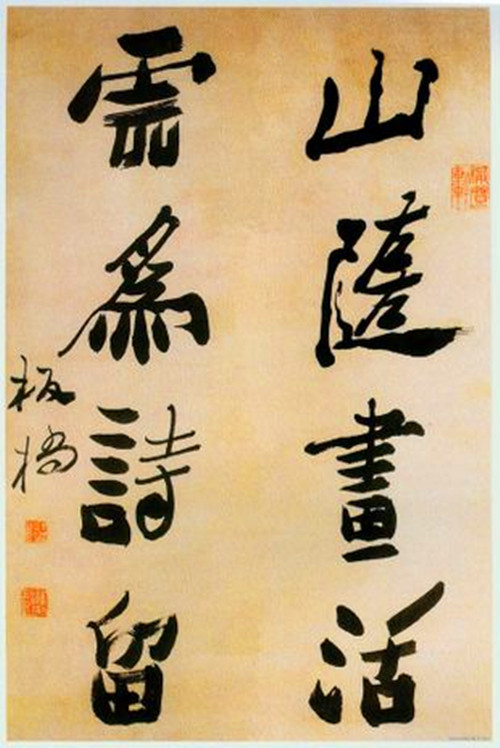 山隨畫活
雲為詩留
板橋